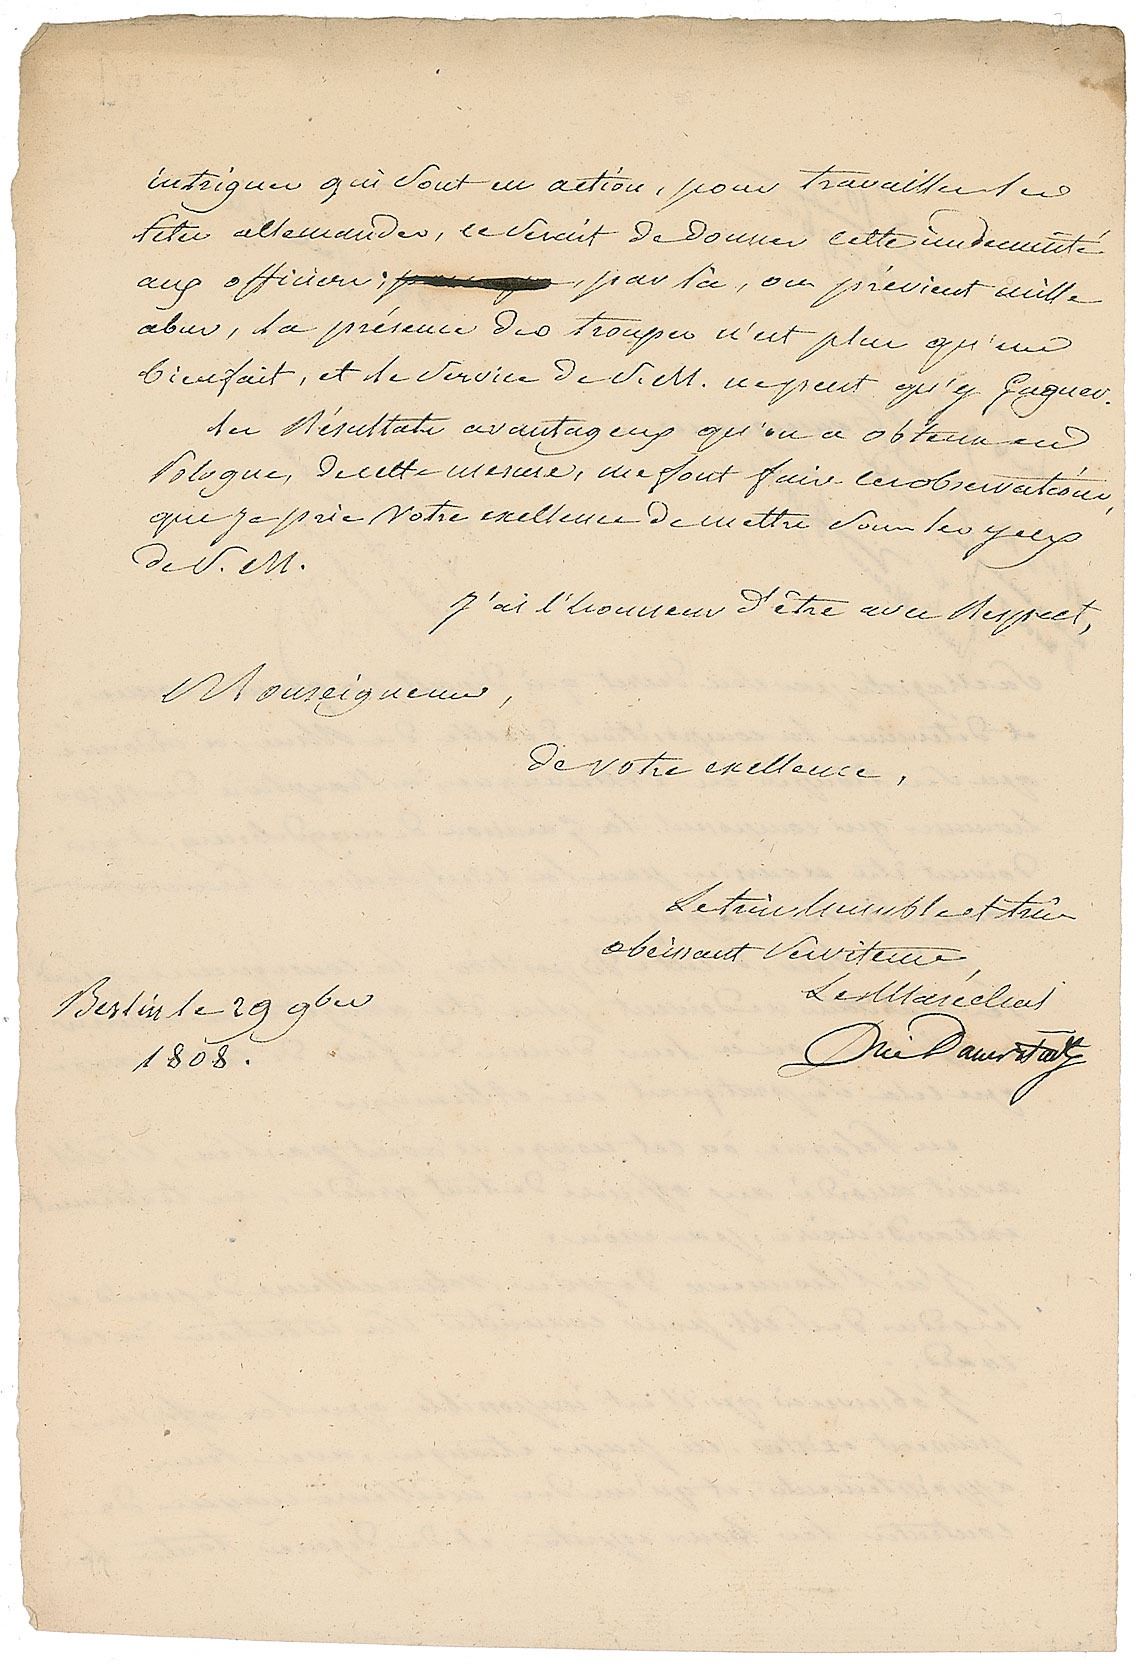 intrigues qui sont en action, pour travailler les
têtes allemandes, ce serait de donner cette indemnité
aux officiers; par là, on prévient mille
abus, la présence des troupes n'est plus qu'un
bienfait, et le service de S. M. ne peut qu'y gagner.
les Résultats avantageux qu'on a obtenu en
Pologne, de cette mesure, me font faire ces observations,
que je prie Votre exellence de mettre sous les yeux
de S. M.
J'ai l'honneur d'être avec Respect,
Monseigneur,
de votre exellence,
Le très humble et très
obéissant serviteur,
Le Maréchal
Duc Dauerstaedt
Berlin le 29 9bre
1808.